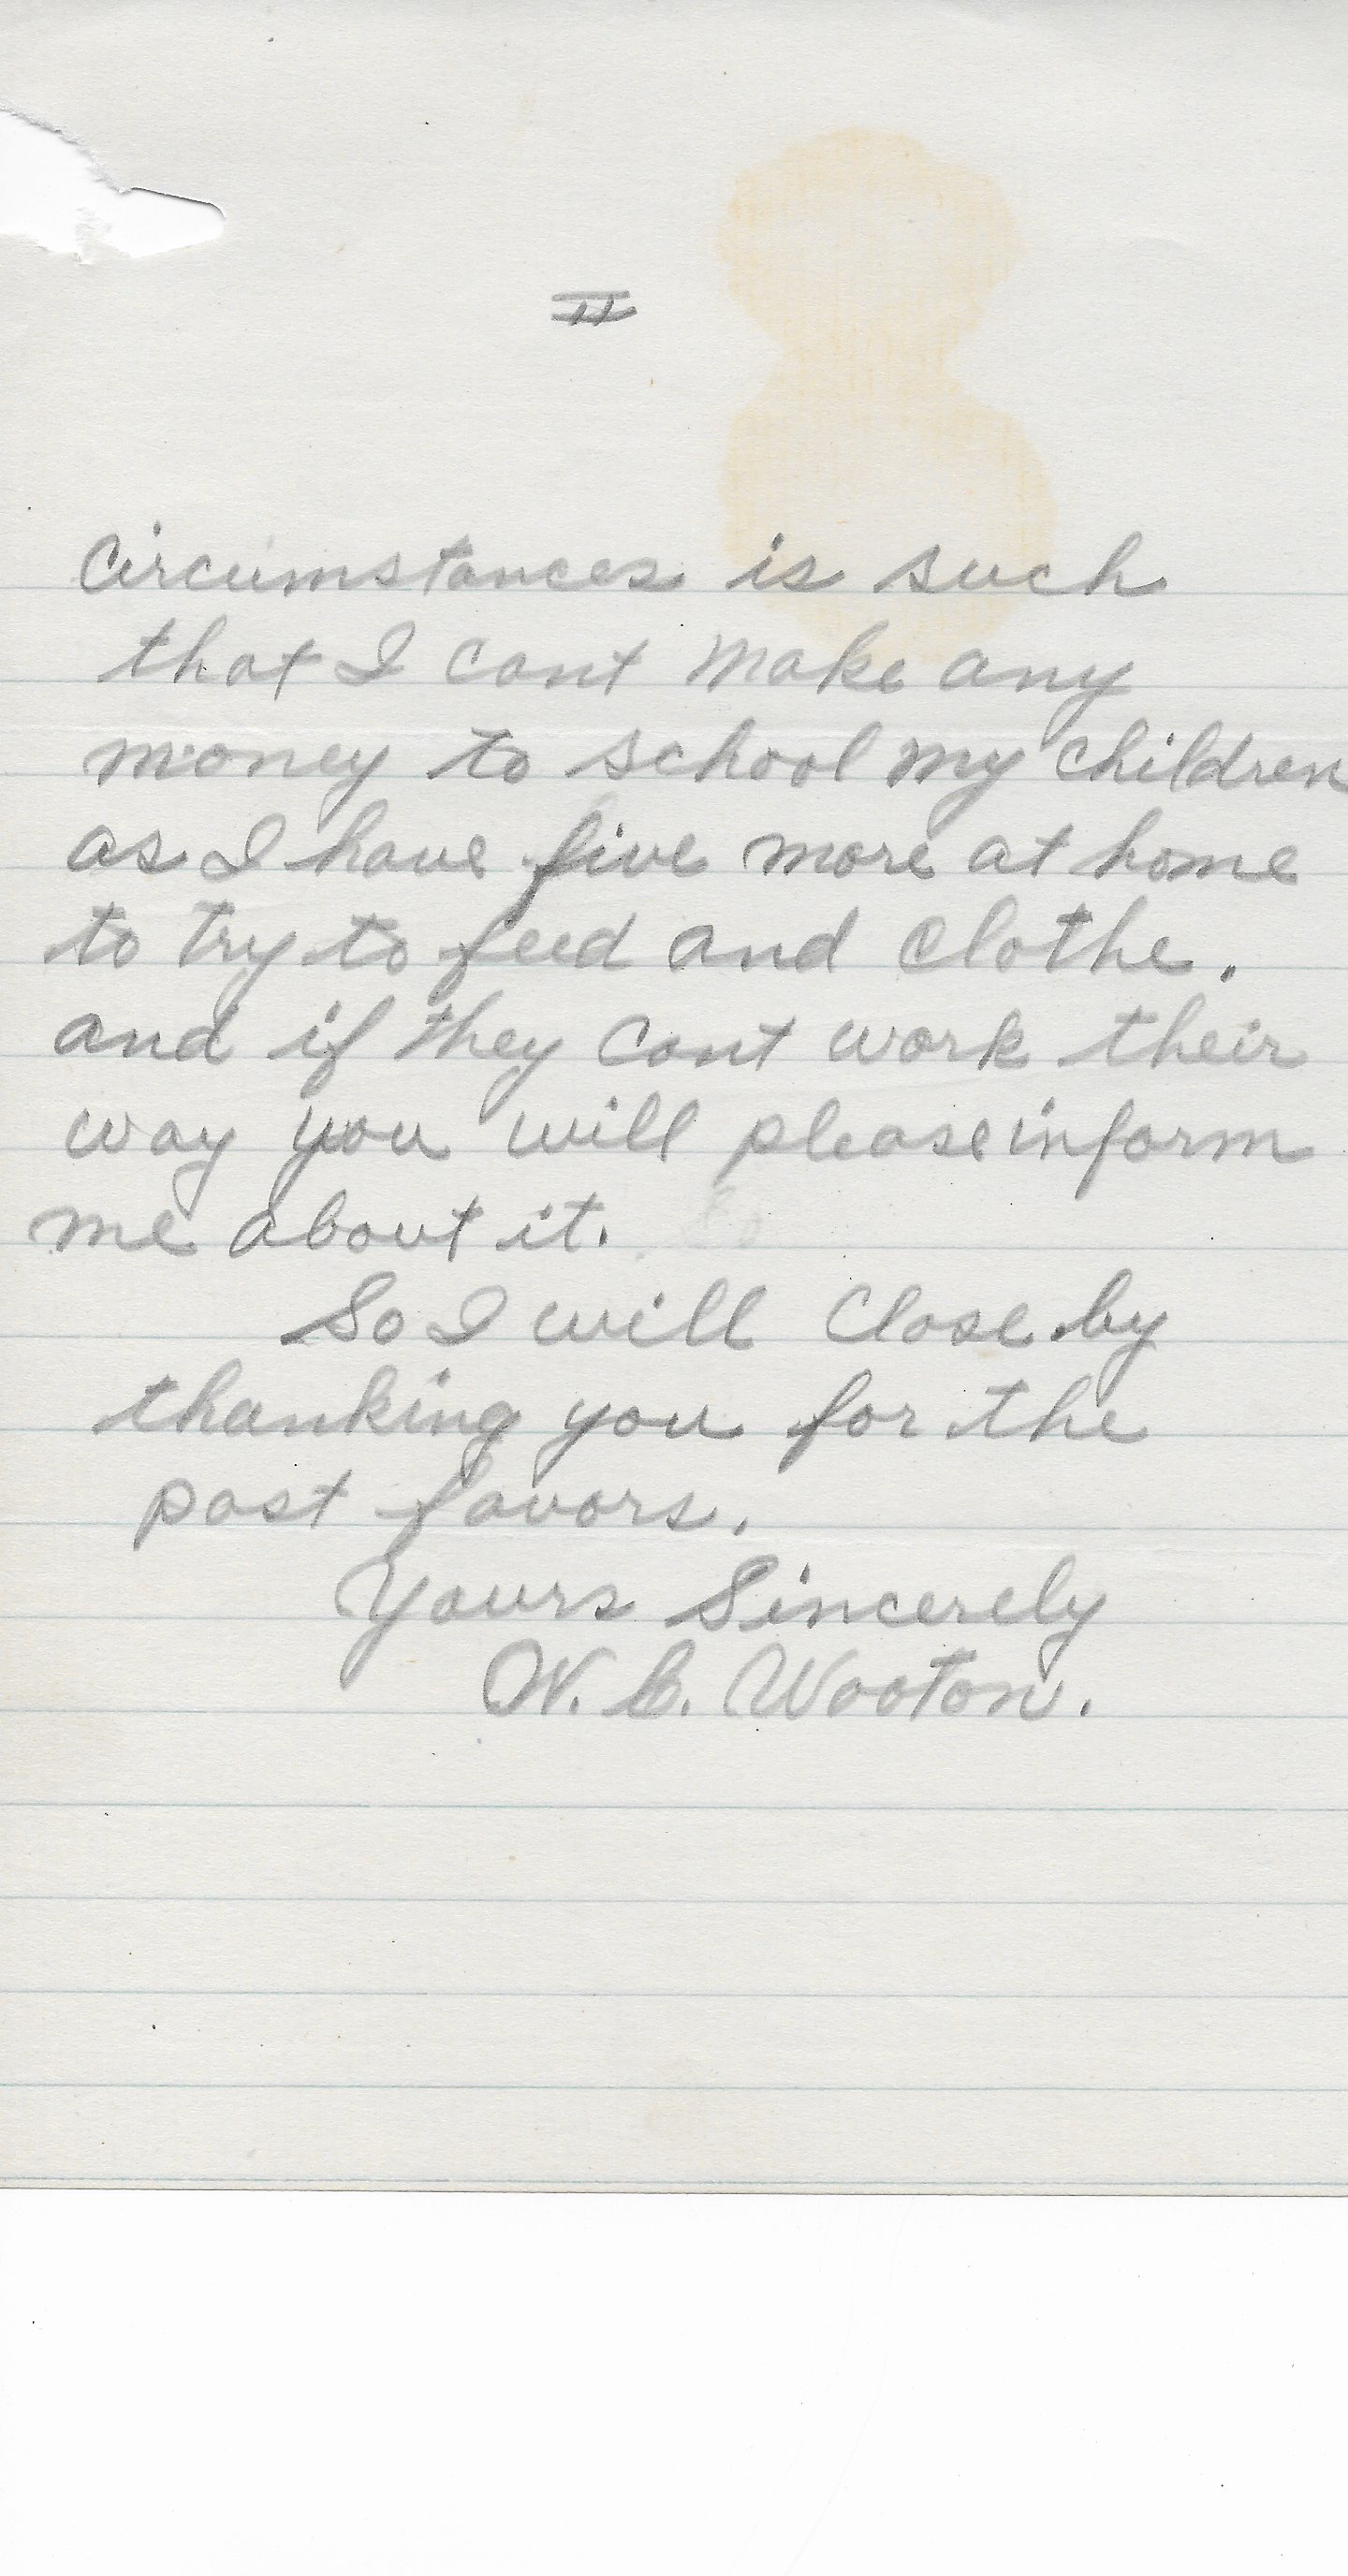 II
Circumstances is such
that I cant make any
money to school my children
as I have five more at home
to try to feed and clothe.
and if they cant work their
way you will please inform
me about it.
So I will close by
thanking you for the
past favors.
Yours Sincerely
W. C. Wooton.